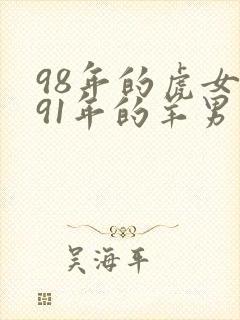 98年的虎女
91年的羊男
吴海平